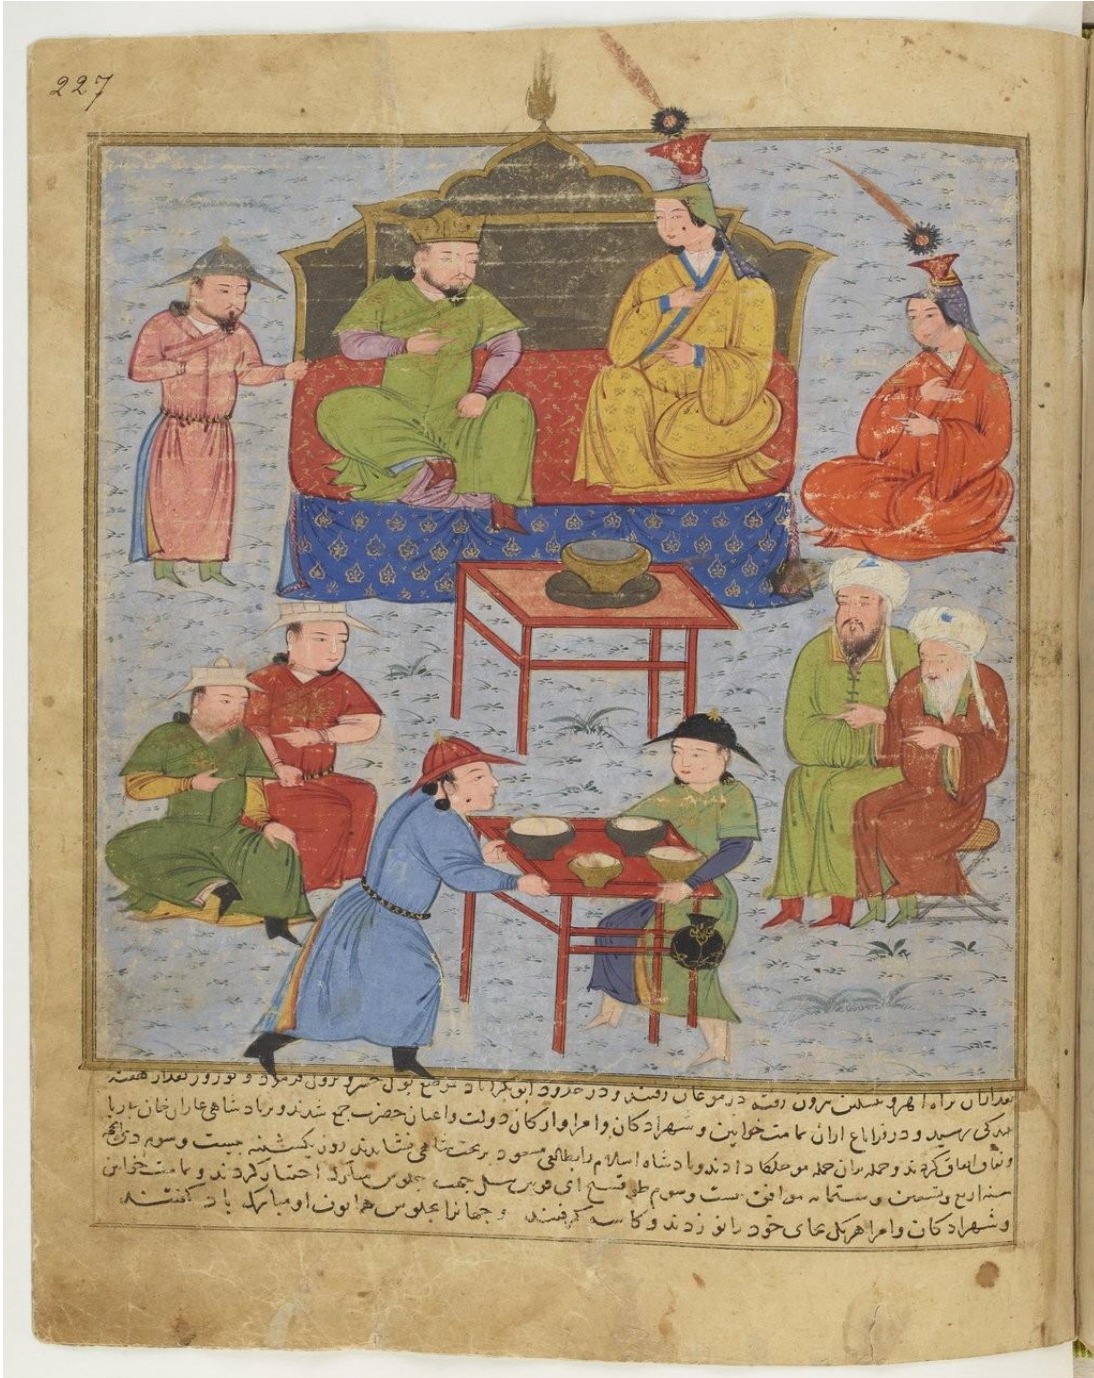 227
بعد ازان براه ابهر و سلین برون رفته در موغان رفتند و در حدود ابوبکراباد بموضع نزول فرمود و نوروز بعد از هفته
بندکی رسید و در قراباغ اران تمامت خواتین و شهزادکان و امرا و ارکان دولت و اعیان حضرت جمع شدند و بر پادشاهی غازان خان
و اتفاق کردند و جمله بران جمله موجلکا دادند و پادشاه اسلام را بطالعی مسعود بر تخت شاهی نشاندند روز یکشنبه بیست و سوم ذی الحجه
سنه اربع و تسعین و ستمایه موافق بیست و سوم ای قوین ییل جهت جلوس مبارک اختیار کردند و تمامت خواتین
و شهزادکان و امرا هر یک بجای خود زانو زدند و کاسه کرفتند و جهانرا بجلوس همایون او مبارک باد کفتند